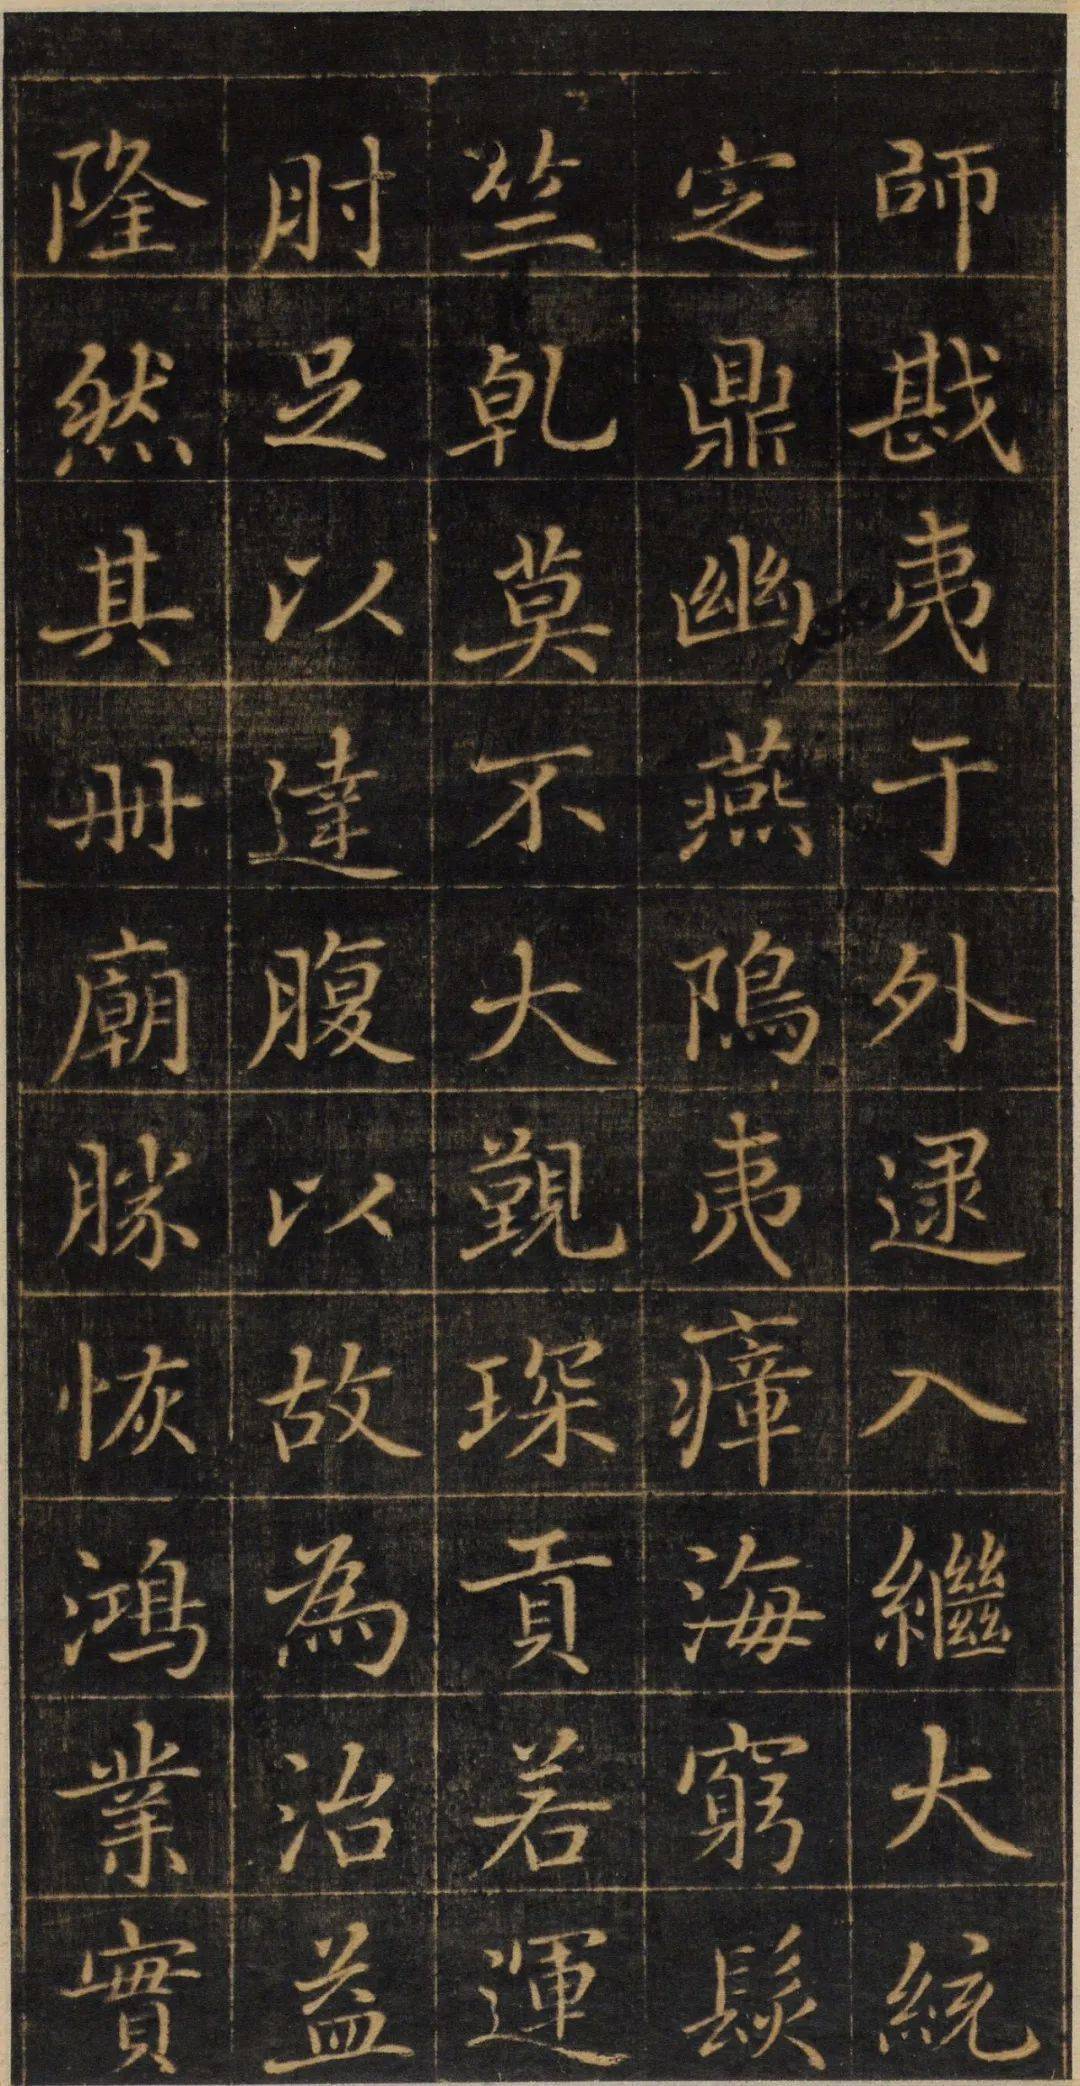 師戡夷于外逮入繼大統
定鼎幽燕隖夷瘴海窮髮
竺乹莫不大覲琛貢若運
肘足以達腹以故為治益
隆然其冊廟勝恢鴻業實